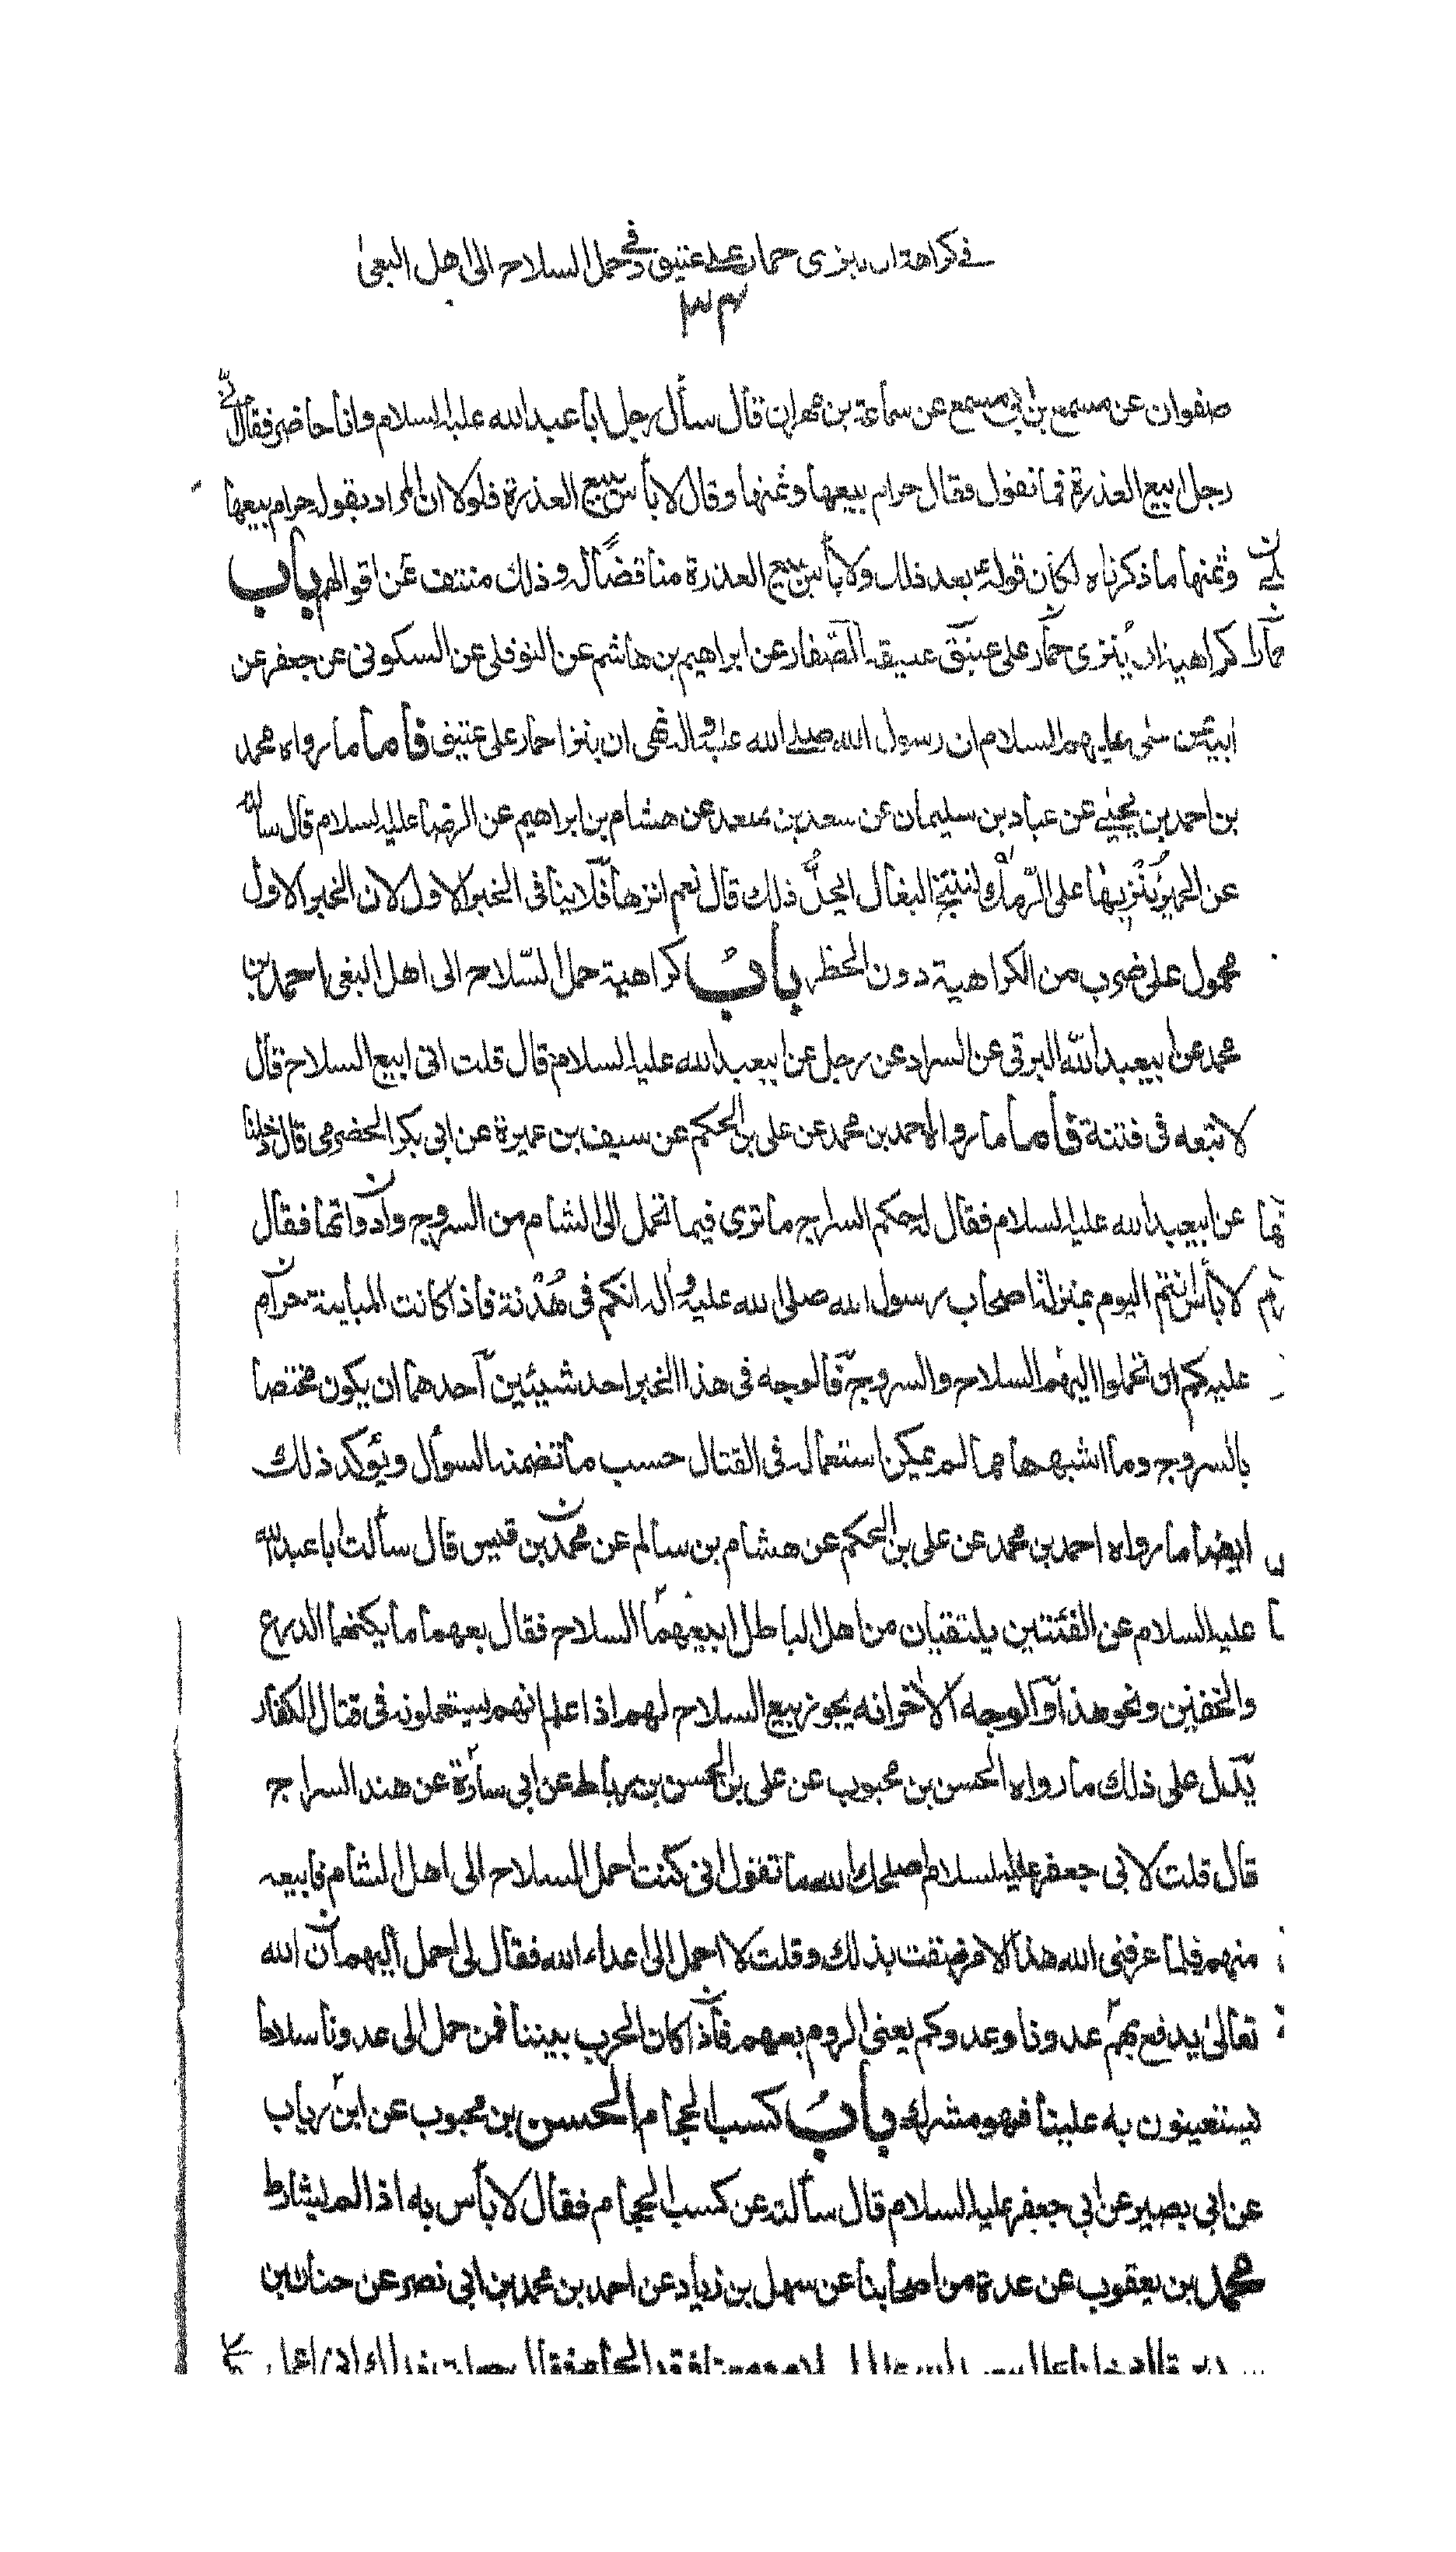 في كراهة ان ينزى حمار على عتيق وفي حمل السلاح الى اهل البغى
صفوان عن مسمع بن ابي مسمع عن سماعة بن مهران قال سأل رجل ابا عبد الله عليه السلام وانا حاضر فقال اني
رجل ابيع العذرة فما تقول فقال حرام بيعها وثمنها وقال لا بأس ببيع العذرة فلولا ان المراد بقوله حرام بيعها
وثمنها ما ذكرناه لكان قوله بعد ذلك ولا بأس ببيع العذرة مناقضا له وذلك منتف عن اقوالهم باب
كراهية ان ينزى حمار على عتيق الصفار عن ابراهيم بن هاشم عن النوفلي عن السكوني عن جعفر عن
ابيه عن علي عليهم السلام ان رسول الله صلى الله عليه واله نهى ان ينزا حمار على عتيق فأما ما رواه محمد
بن احمد بن يحيى عن عباد بن سليمان عن سعد بن سعد عن هشام بن ابراهيم عن الرضا عليه السلام قال سألته
عن الحمير ننزيها على الرمك لتنتج البغال ايحل ذلك قال نعم انزها فلا ينافى الخبر الاول لان الخبر الاول
محمول على ضرب من الكراهية دون الحظر باب كراهية حمل السلاح الى اهل البغى احمد بن
محمد عن ابيعبد الله البرقي عن السراد عن رجل عن ابيعبد الله عليه السلام قال قلت انى ابيع السلاح قال
لا تبعه فى فتنة فأما ما رواه احمد بن محمد عن على بن الحكم عن سيف بن عميرة عن ابى بكر الحضرمى قال دخلنا
عن ابيعبد الله عليه السلام فقال له حكم السراج ما ترى فيما تحمل الى الشام من السروج وادواتها فقال
لا بأس انتم اليوم بمنزلة اصحاب رسول الله صلى الله عليه واله انكم فى هدنة فاذا كانت المباينة حرام
عليكم ان تحملوا اليهم السلاح والسروج فالوجه فى هذا الخبر احد شيئين احدهما ان يكون مختصا
بالسروج وما اشبهها مما لم يمكن استعماله فى القتال حسب ما تضمنه السؤال ويؤكد ذلك
ايضا ما رواه احمد بن محمد عن على بن الحكم عن هشام بن سالم عن محمد بن قيس قال سألت ابا عبد الله
عليه السلام عن الفئتين يلتقيان من اهل الباطل ابيعهما السلاح فقال بعهما ما يكنهما الدرع
والخفين ونحو هذا والوجه الاخر انه يجوز بيع السلاح لهم اذا علم انهم يستعملونه فى قتال الكفار
يدل على ذلك ما رواه الحسن بن محبوب عن على بن الحسن بن رباط عن ابى سارة عن هند السراج
قال قلت لابى جعفر عليه السلام اصلحك الله ما تقول انى كنت احمل السلاح الى اهل الشام فابيعه
منهم فلما عرفنى الله هذا الامر ضقت بذلك وقلت لا احمل الى اعداء الله فقال لى احمل اليهم ان الله
تعالى يدفع بهم عدونا وعدوكم يعنى الروم بعهم فاذا كان الحرب بيننا فمن حمل الى عدونا سلاحا
يستعينون به علينا فهو مشرك باب كسب الحجام الحسن بن محبوب عن ابن رياب
عن ابى بصير عن ابى جعفر عليه السلام قال سألته عن كسب الحجام فقال لا بأس به اذا لم يشارط
محمد بن يعقوب عن عدة من اصحابنا عن سهل بن زياد عن احمد بن محمد بن ابى نصر عن حنان بن